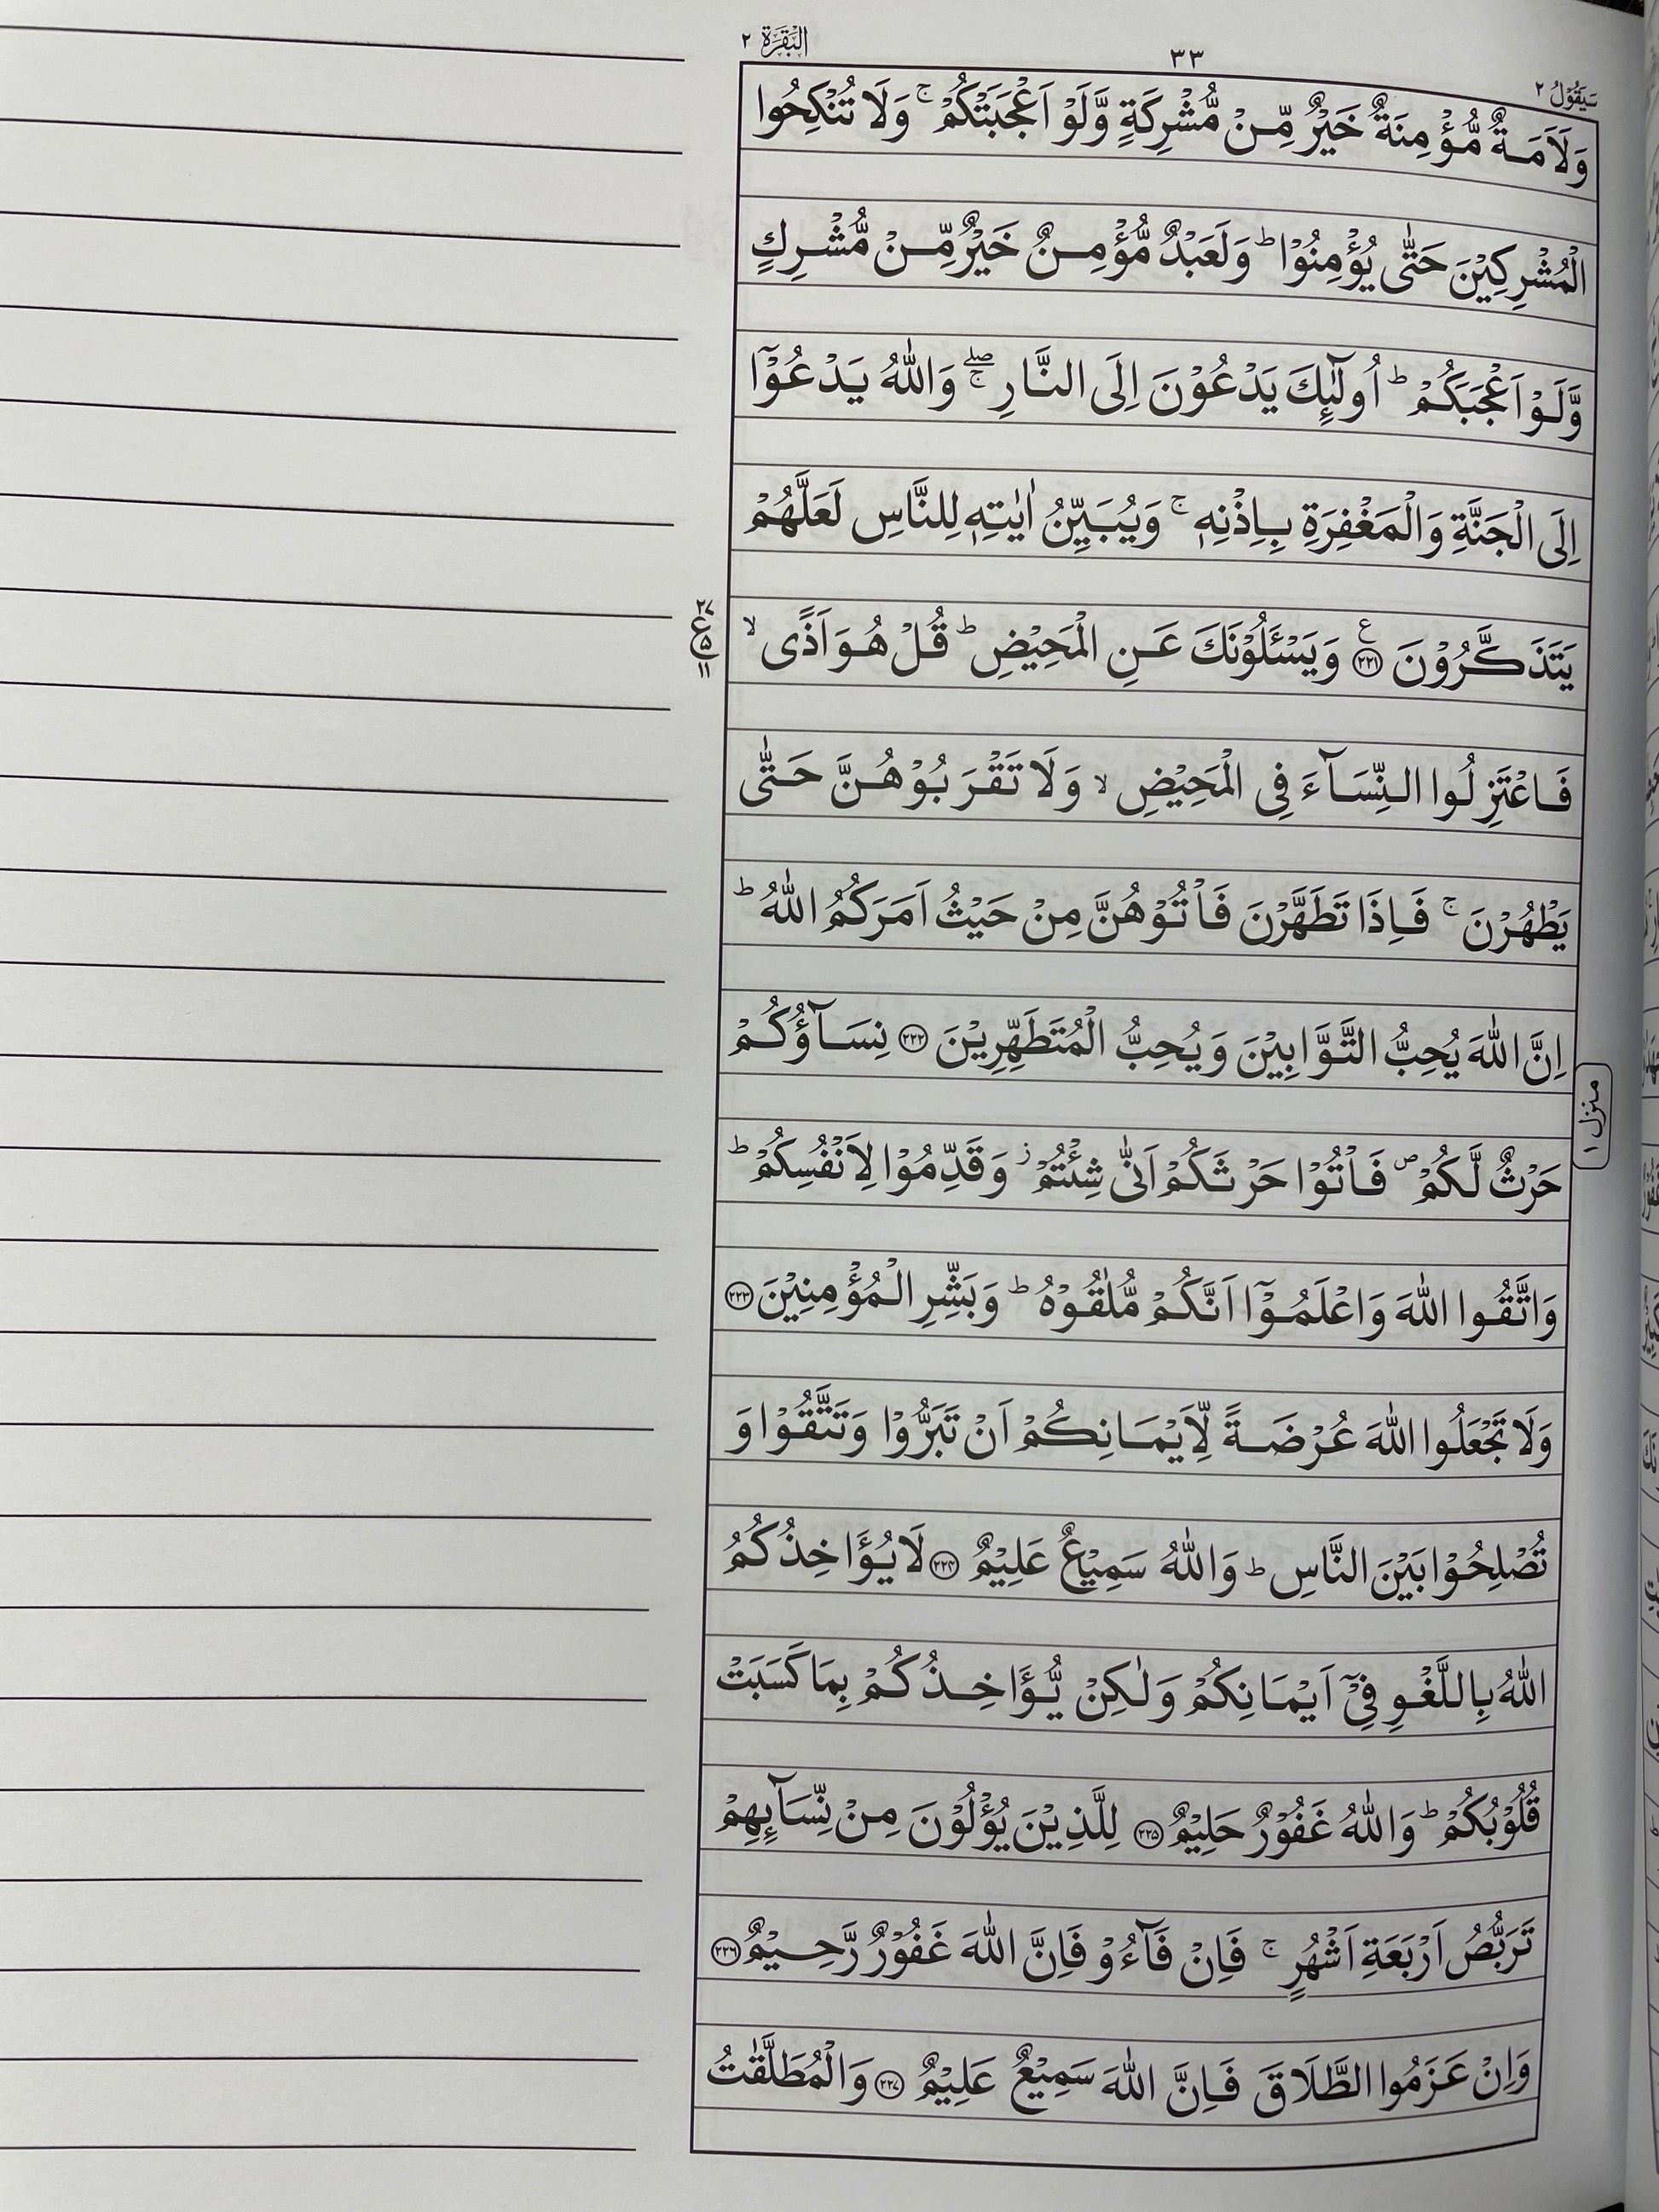 سَيَقُوْلُ ٢ ٣٣ الْبَقَرَة ٢
وَلَاَمَةٌ مُّؤْمِنَةٌ خَيْرٌ مِّنْ مُّشْرِكَةٍ وَّلَوْ اَعْجَبَتْكُمْ ۚ وَلَا تُنْكِحُوا
الْمُشْرِكِيْنَ حَتّٰى يُؤْمِنُوْا ؕ وَلَعَبْدٌ مُّؤْمِنٌ خَيْرٌ مِّنْ مُّشْرِكٍ
وَّلَوْ اَعْجَبَكُمْ ؕ اُولٰٓئِكَ يَدْعُوْنَ اِلَى النَّارِ ۖۚ وَاللّٰهُ يَدْعُوْٓا
اِلَى الْجَنَّةِ وَالْمَغْفِرَةِ بِاِذْنِهٖ ۚ وَيُبَيِّنُ اٰيٰتِهٖ لِلنَّاسِ لَعَلَّهُمْ
يَتَذَكَّرُوْنَ ع ﴿٢٢١﴾ وَيَسْـَٔلُوْنَكَ عَنِ الْمَحِيْضِ ؕ قُلْ هُوَ اَذًى ۙ
٢٧ ع ٥ ١١
فَاعْتَزِلُوا النِّسَآءَ فِى الْمَحِيْضِ ۙ وَلَا تَقْرَبُوْهُنَّ حَتّٰى
يَطْهُرْنَ ۚ فَاِذَا تَطَهَّرْنَ فَاْتُوْهُنَّ مِنْ حَيْثُ اَمَرَكُمُ اللّٰهُ ؕ
اِنَّ اللّٰهَ يُحِبُّ التَّوَّابِيْنَ وَيُحِبُّ الْمُتَطَهِّرِيْنَ ﴿٢٢٢﴾ نِسَآؤُكُمْ
منزل ١
حَرْثٌ لَّكُمْ ۪ فَاْتُوْا حَرْثَكُمْ اَنّٰى شِئْتُمْ ؗ وَقَدِّمُوْا لِاَنْفُسِكُمْ ؕ
وَاتَّقُوا اللّٰهَ وَاعْلَمُوْٓا اَنَّكُمْ مُّلٰقُوْهُ ؕ وَبَشِّرِ الْمُؤْمِنِيْنَ ﴿٢٢٣﴾
وَلَا تَجْعَلُوا اللّٰهَ عُرْضَةً لِّاَيْمَانِكُمْ اَنْ تَبَرُّوْا وَتَتَّقُوْا وَ
تُصْلِحُوْا بَيْنَ النَّاسِ ؕ وَاللّٰهُ سَمِيْعٌ عَلِيْمٌ ﴿٢٢٤﴾ لَا يُؤَاخِذُكُمُ
اللّٰهُ بِاللَّغْوِ فِىْٓ اَيْمَانِكُمْ وَلٰكِنْ يُّؤَاخِذُكُمْ بِمَا كَسَبَتْ
قُلُوْبُكُمْ ؕ وَاللّٰهُ غَفُوْرٌ حَلِيْمٌ ﴿٢٢٥﴾ لِلَّذِيْنَ يُؤْلُوْنَ مِنْ نِّسَآئِهِمْ
تَرَبُّصُ اَرْبَعَةِ اَشْهُرٍ ۚ فَاِنْ فَآءُوْ فَاِنَّ اللّٰهَ غَفُوْرٌ رَّحِيْمٌ ﴿٢٢٦﴾
وَاِنْ عَزَمُوا الطَّلَاقَ فَاِنَّ اللّٰهَ سَمِيْعٌ عَلِيْمٌ ﴿٢٢٧﴾ وَالْمُطَلَّقٰتُ